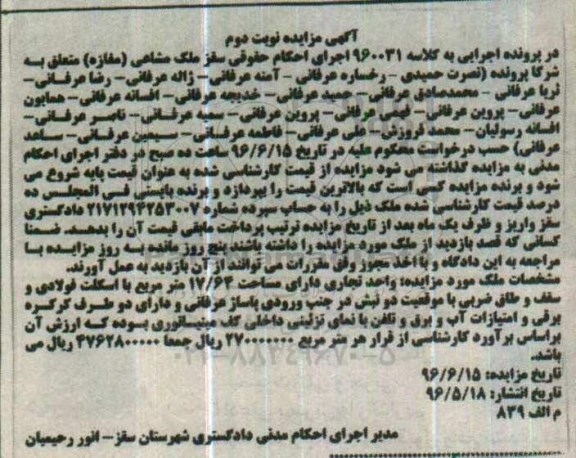 آگهی مزایده نوبت دوم
در پرونده اجرایی به کلاسه ۹۶۰۰۳۱ اجرای احکام حقوقی سقز ملک مشاعی (مغازه) متعلق به
شرکا پرونده (نصرت حمیدی - رخساره عرفانی - آمنه عرفانی- ژاله عرفانی- رضا عرفانی-
ثریا عرفانی - محمدصادق عرفانی- حمید عرفانی- خدیجه عرفانی- افسانه عرفانی- همایون
عرفانی- پروین عرفانی- فهمی عرفانی- پروین عرفانی- سمیه عرفانی- ناصر عرفانی-
افسانه رسولیان- محمد فروزش- علی عرفانی- فاطمه عرفانی- سیمین عرفانی- ساعد
عرفانی) حسب درخواست محکوم علیه در تاریخ ۹۶/۶/۱۵ ساعت ده صبح در دفتر اجرای احکام
مدنی به مزایده گذاشته می شود مزایده از قیمت کارشناسی شده به عنوان قیمت پایه شروع می
شود و برنده مزایده کسی است که بالاترین قیمت را بپردازد و برنده بایستی فی المجلس ده
درصد قیمت کارشناسی شده ملک ذیل را به حساب سپرده شماره ۲۱۷۱۲۹۴۲۵۳۰۰۷ دادگستری
سقز واریز و ظرف یک ماه بعد از تاریخ مزایده ترتیب پرداخت مابقی قیمت آن را بدهد. ضمنا
کسانی که قصد بازدید از ملک مورد مزایده را داشته باشند پنج روز مانده به روز مزایده با
مراجعه به این دادگاه و با اخذ مجوز وفق مقررات می توانند از آن بازدید به عمل آورند.
مشخصات ملک مورد مزایده: واحد تجاری دارای مساحت ۱۷/۶۴ متر مربع با اسکلت فولادی و
سقف و طاق ضربی با موقعیت دو نبش در جنب ورودی پاساژ عرفانی و دارای دو طرف کرکره
برقی و امتیازات آب و برق و تلفن با نمای تزئینی داخلی کف مینیاتوری بوده که ارزش آن
براساس برآورد کارشناسی از قرار هر متر مربع ۲۷۰۰۰۰۰۰۰ ریال جمعا ۴۷۶۲۸۰۰۰۰۰ ریال می
باشد.
تاریخ مزایده: ۹۶/۶/۱۵
تاریخ انتشار: ۹۶/۵/۱۸
م الف ۸۳۹
مدیر اجرای احکام مدنی دادگستری شهرستان سقز- انور رحیمیان